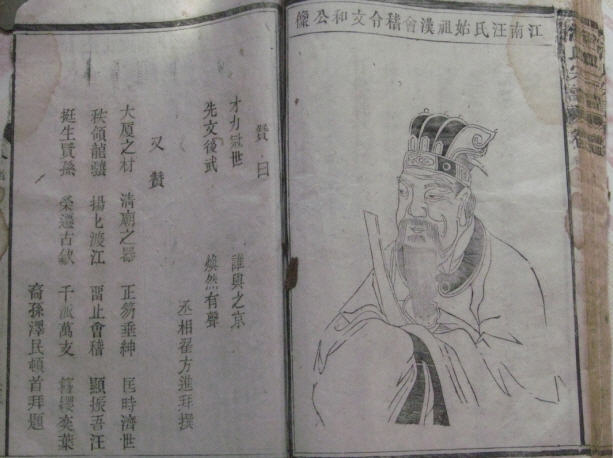 江南汪氏始祖漢會稽令文和公像
贊曰
才力冠世 誰與之京
先文後武 煥然有聲
丞相翟方進拜撰
又贊
大廈之材 清廟之器 正笏垂紳 匡時濟世
秩領龍驤 揚七渡江 畱止會稽 顯振吾汪
挺生賢孫 榮遷古歙 千派萬支 簪纓奕葉
裔孫澤民頓首拜題